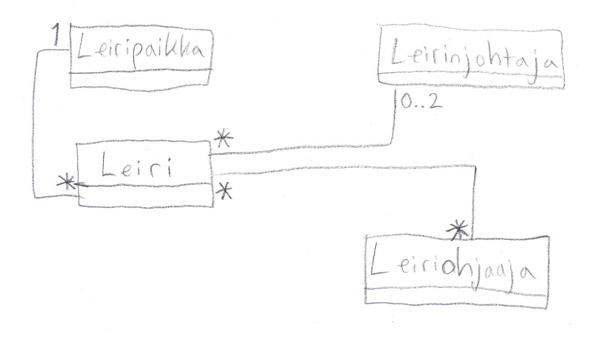 1
Leiripaikka
Leirinjohtaja
0..2
*
Leiri
*
*
*
Leiriohjaaja